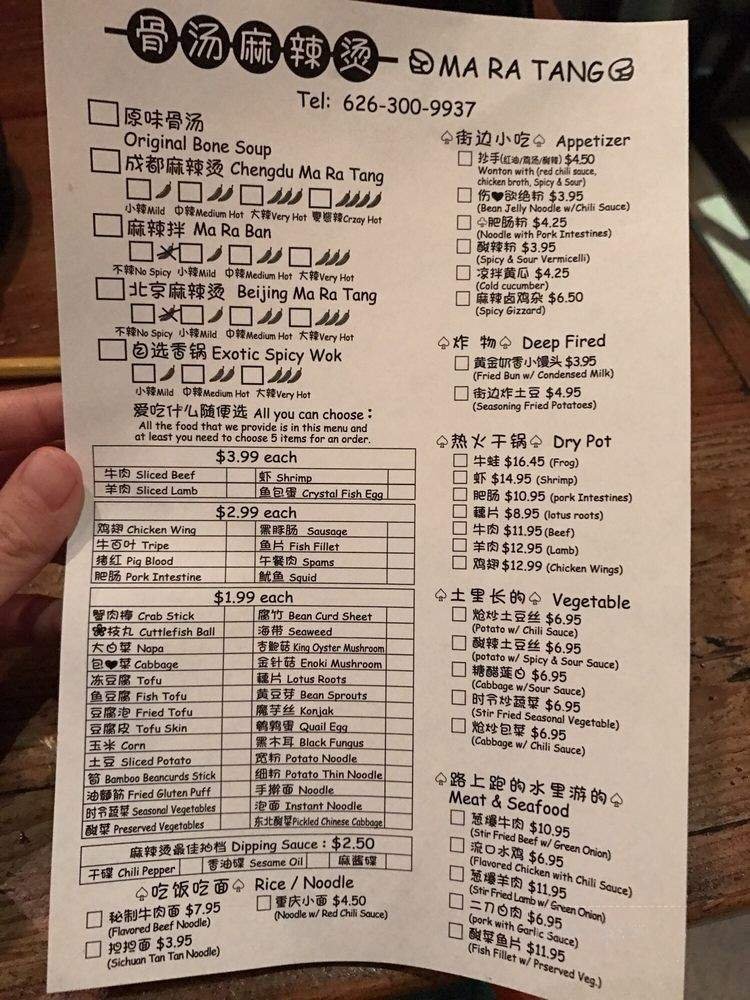 骨汤麻辣烫 MA RA TANG
Tel: 626-300-9937
原味骨汤
Original Bone Soup
成都麻辣烫 Chengdu Ma Ra Tang
小辣Mild 中辣Medium Hot 大辣Very Hot 变态辣Crzay Hot
麻辣拌 Ma Ra Ban
不辣No Spicy 小辣Mild 中辣Medium Hot 大辣Very Hot
北京麻辣烫 Beijing Ma Ra Tang
不辣No Spicy 小辣Mild 中辣Medium Hot 大辣Very Hot
自选香锅 Exotic Spicy Wok
小辣Mild 中辣Medium Hot 大辣Very Hot
爱吃什么随便选 All you can choose:
All the food that we provide is in this menu and
at least you need to choose 5 items for an order.
$3.99 each
牛肉 Sliced Beef 虾 Shrimp
羊肉 Sliced Lamb 鱼包蛋 Crystal Fish Egg
$2.99 each
鸡翅 Chicken Wing 黑豚肠 Sausage
牛百叶 Tripe 鱼片 Fish Fillet
猪红 Pig Blood 午餐肉 Spams
肥肠 Pork Intestine 鱿鱼 Squid
$1.99 each
蟹肉棒 Crab Stick 腐竹 Bean Curd Sheet
花枝丸 Cuttlefish Ball 海带 Seaweed
大白菜 Napa 杏鲍菇 King Oyster Mushroom
包♥菜 Cabbage 金针菇 Enoki Mushroom
冻豆腐 Tofu 藕片 Lotus Roots
鱼豆腐 Fish Tofu 黄豆芽 Bean Sprouts
豆腐泡 Fried Tofu 魔芋丝 Konjak
豆腐皮 Tofu Skin 鹌鹑蛋 Quail Egg
玉米 Corn 黑木耳 Black Fungus
土豆 Sliced Potato 宽粉 Potato Noodle
笋 Bamboo Beancurds Stick 细粉 Potato Thin Noodle
油麵筋 Fried Gluten Puff 手擀面 Noodle
时令蔬菜 Seasonal Vegetables 泡面 Instant Noodle
酸菜 Preserved Vegetables 东北酸菜Pickled Chinese Cabbage
麻辣烫最佳拍档 Dipping Sauce: $2.50
干碟 Chili Pepper 香油碟 Sesame Oil 麻酱碟
♤吃饭吃面♤ Rice / Noodle
秘制牛肉面 $7.95
(Flavored Beef Noodle)
重庆小面 $4.50
(Noodle w/ Red Chili Sauce)
担担面 $3.95
(Sichuan Tan Tan Noodle)
♤街边小吃♤ Appetizer
抄手(红油/鸡汤/酸辣) $4.50
Wonton with (red chili sauce,
chicken broth, Spicy & Sour)
伤♥欲绝粉 $3.95
(Bean Jelly Noodle w/Chili Sauce)
♤肥肠粉 $4.25
(Noodle with Pork Intestines)
酸辣粉 $3.95
(Spicy & Sour Vermicelli)
凉拌黄瓜 $4.25
(Cold cucumber)
麻辣卤鸡杂 $6.50
(Spicy Gizzard)
♤炸 物♤ Deep Fired
黄金奶香小馒头 $3.95
(Fried Bun w/ Condensed Milk)
街边炸土豆 $4.95
(Seasoning Fried Potatoes)
♤热火干锅♤ Dry Pot
牛蛙 $16.45 (Frog)
虾 $14.95 (Shrimp)
肥肠 $10.95 (pork Intestines)
藕片 $8.95 (lotus roots)
牛肉 $11.95 (Beef)
羊肉 $12.95 (Lamb)
鸡翅 $12.99 (Chicken Wings)
♤土里长的♤ Vegetable
炝炒土豆丝 $6.95
(Potato w/ Chili Sauce)
酸辣土豆丝 $6.95
(potato w/ Spicy & Sour Sauce)
糖醋莲白 $6.95
(Cabbage w/Sour Sauce)
时令炒蔬菜 $6.95
(Stir Fried Seasonal Vegetable)
炝炒包菜 $6.95
(Cabbage w/ Chili Sauce)
♤路上跑的水里游的♤
Meat & Seafood
葱爆牛肉 $10.95
(Stir Fried Beef w/ Green Onion)
流口水鸡 $6.95
(Flavored Chicken with Chili Sauce)
葱爆羊肉 $11.95
(Stir Fried Lamb w/ Green Onion)
二刀白肉 $6.95
(pork with Garlic Sauce)
酸菜鱼片 $11.95
(Fish Fillet w/ Prserved Veg.)